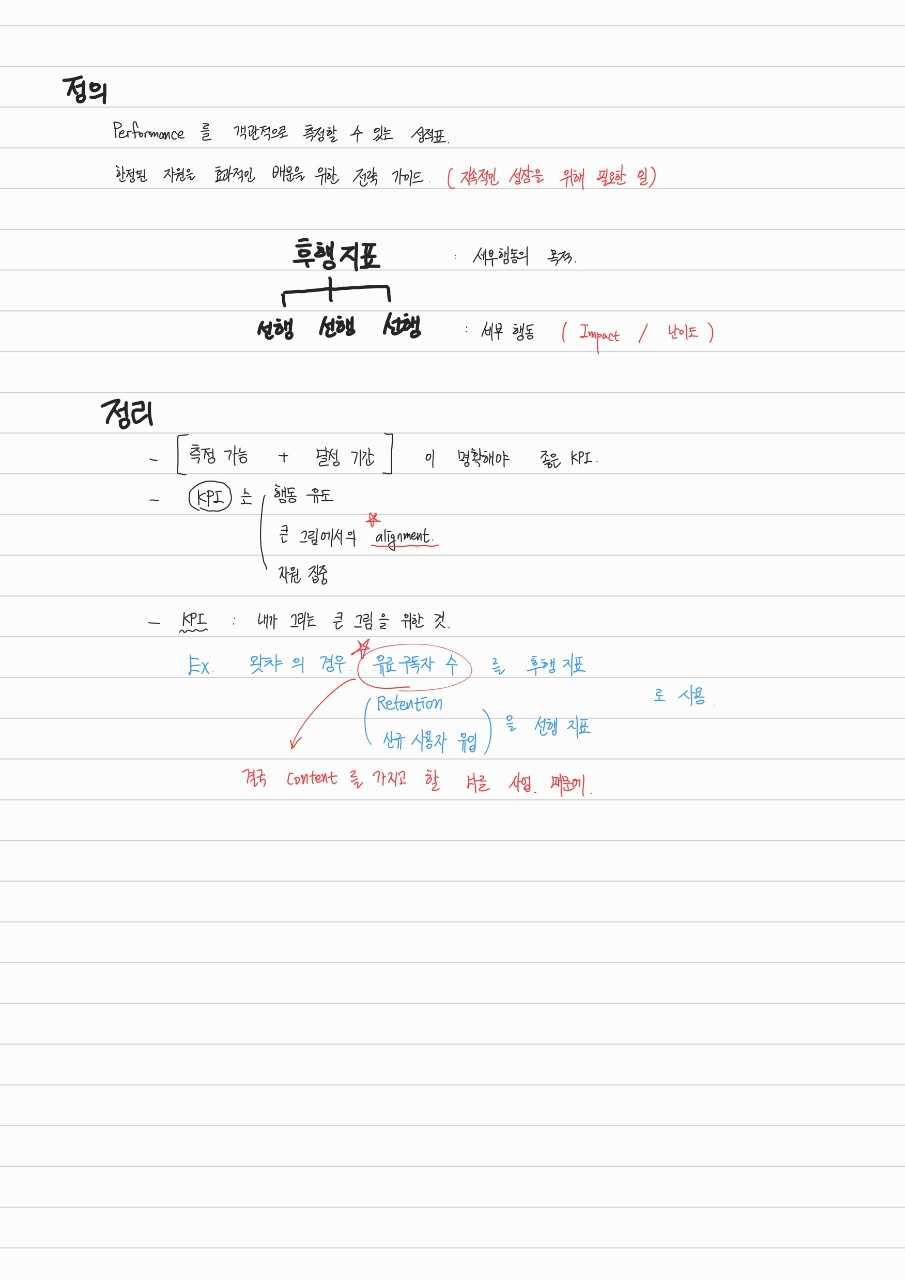 정의
Performance 를 객관적으로 측정할 수 있는 성적표.
한정된 자원을 효과적인 배운을 위한 전략 가이드. (지속적인 성장을 위해 필요한 일)
후행지표 : 세부행동의 목적.
선행 선행 선행 : 세부 행동 ( Impact / 난이도 )
정리
- [측정 가능 + 달성 기간] 이 명확해야 좋은 KPI.
- KPI 는 행동 유도
큰 그림에서의 alignment.
자원 집중
- KPI : 내가 그리는 큰 그림을 위한 것.
Ex. 왓챠 의 경우. 유료구독자 수 를 후행 지표
로 사용.
(Retention
신규 사용자 유입) 을 선행 지표
결국 Content 를 가지고 할 사업. 때문에.